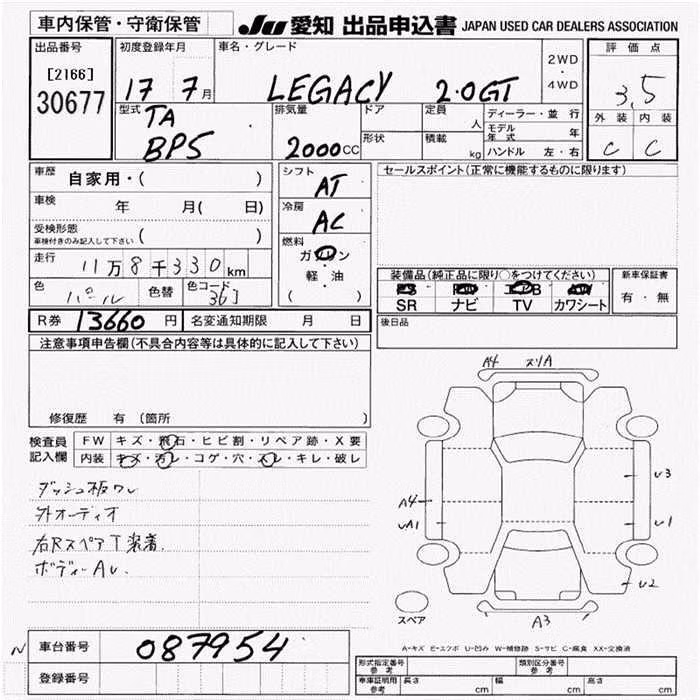 車内保管・守衛保管
JU 愛知 出品申込書 JAPAN USED CAR DEALERS ASSOCIATION
出品番号 初度登録年月 車名・グレード 評価点
[2166]
30677
17 7月 LEGACY 2.0GT 2WD・4WD 3.5
型式 TA BP5
排気量 2000cc
ドア
形状
定員 人
積載 kg
ディーラー・並行
モデル年式 年
ハンドル 左・右
外装 内装
C C
車歴 自家用・( )
車検 年 月( 日)
受検形態 ( )
車検付きのみ記入して下さい
走行 11万8千330km
色 パール 色替 色コード 36J
シフト AT
冷房 AC
燃料
ガソリン
・
軽・油
( )
セールスポイント(正常に機能するものに限ります)
装備品(純正品に限り○をつけてください)
PS PW エアB AW
SR ナビ TV カワシート
新車保証書
有・無
後日品
R券 13660円 名変通知期限 月 日
注意事項申告欄(不具合内容等は具体的に記入して下さい)
修復歴 有(箇所 )
検査員記入欄
FW キズ・飛石・ヒビ割・リペア跡・X要
内装 キズ・汚レ・コゲ・穴・スレ・キレ・破レ
ダッシュ板ワレ
外オーディオ
右Rスペア T装着.
ボディーAレ.
A4 スリA
A4
UA1
U3
U1
U2
A3
スペア
A-キズ E-エクボ U-凹み W-補修跡 S-サビ C-腐食 XX-交換済
N 車台番号 087954
登録番号
形式指定番号 参考 類別区分番号 参考
車庫証明用 参考 長さ cm 幅 cm 高さ cm